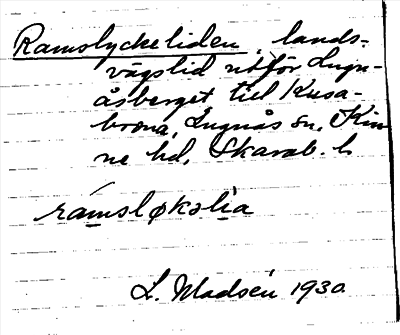 Ramslyckeliden, lands-
vägslid utför Lugn-
åsberget till Kusa-
brona, Lugnås sn, Kin
ne hd, Skarab. l.
ramsløkəlia
L. Madsén 1930